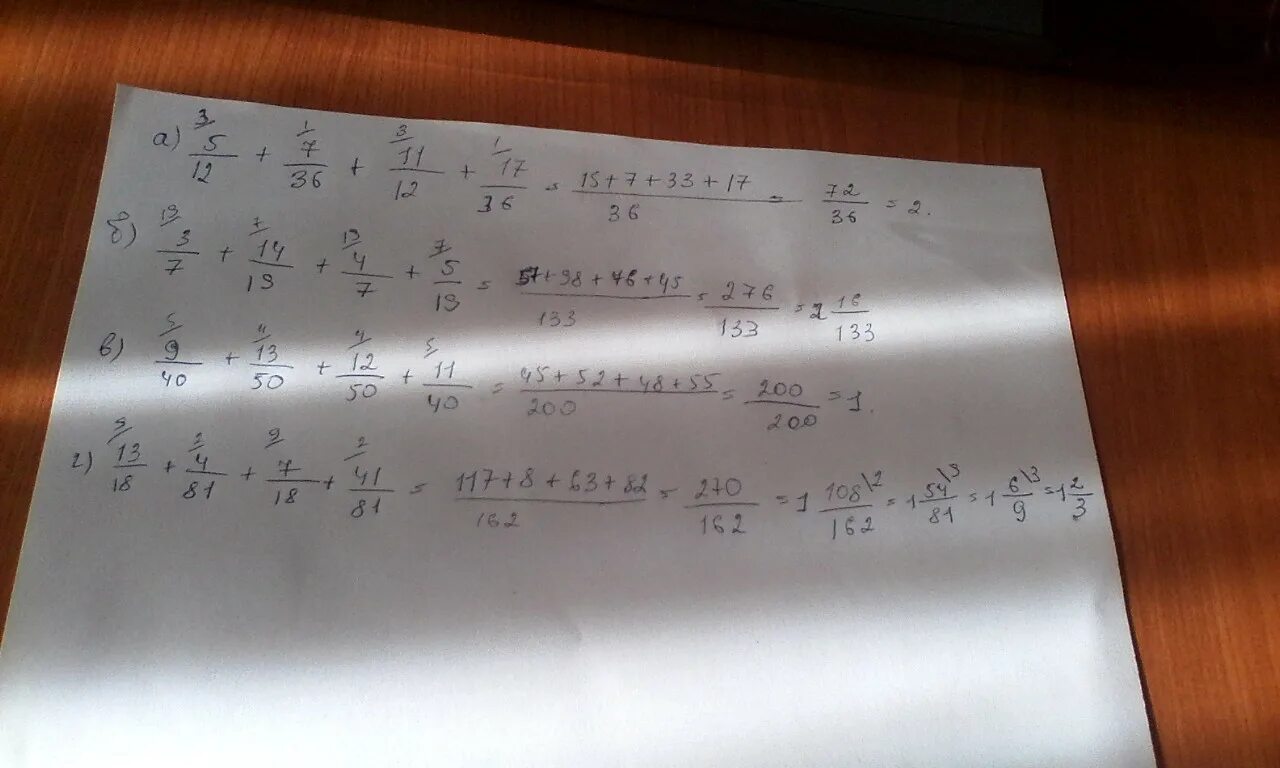 а) 3/ 5/12 + 1/ 7/36 + 3/ 11/12 + 1/ 17/36 = (15+7+33+17)/36 = 72/36 = 2.
б) 19/ 3/7 + 7/ 14/19 + 19/ 4/7 + 7/ 5/19 = (57+98+76+45)/133 = 276/133 = 2 16/133
в) 5/ 9/40 + 4/ 13/50 + 4/ 12/50 + 5/ 11/40 = (45+52+48+55)/200 = 200/200 = 1.
г) 9/ 13/18 + 2/ 4/81 + 9/ 7/18 + 2/ 41/81 = (117+8+63+82)/162 = 270/162 = 1 108\2/162 = 1 54\3/81 = 1 6\3/9 = 1 2/3